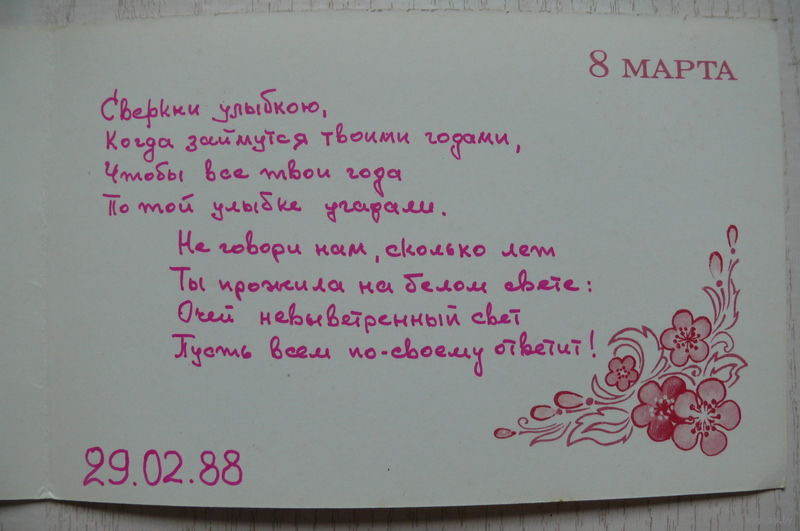 8 МАРТА
Сверкни улыбкою,
Когда займутся твоими годами,
Чтобы все твои года
По той улыбке угадали.
Не говори нам, сколько лет
Ты прожила на белом свете:
Очей невыветренный свет
Пусть всем по-своему ответит!
29.02.88